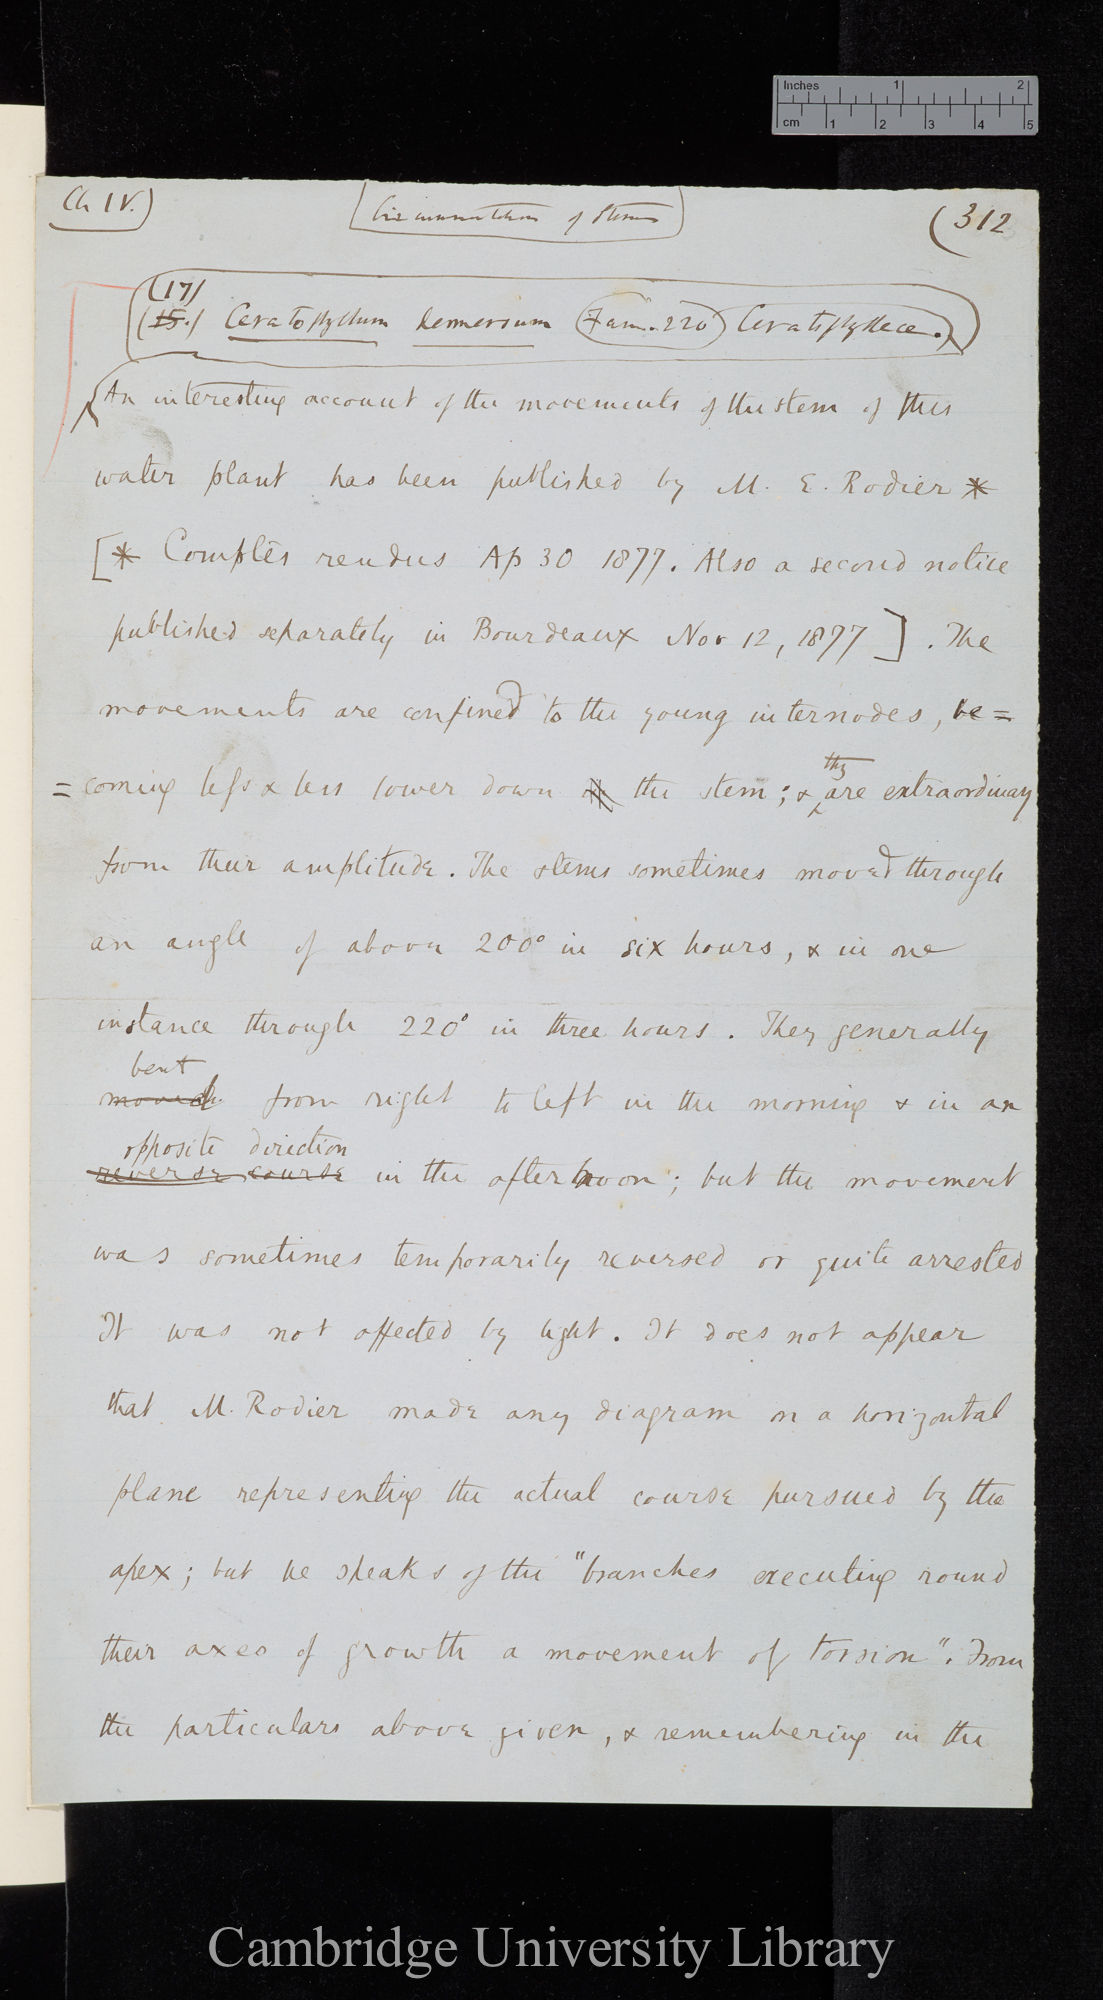 Inches 1 2
cm 1 2 3 4 5
Ch IV.) Circumnutation of Stems (312
(17)
(15.) Ceratophyllum demersum (Fam. 220) Ceratophylleæ.)
An interesting account of the movements of the stem of this
water plant has been published by M. E. Rodier *
[* Comptes rendus Ap 30 1877. Also a second notice
published separately in Bourdeaux Nov 12, 1877]. The
movements are confined to the young internodes, be=
they
=coming less & less lower down the stem; & are extraordinary
from their amplitude. The stems sometimes moved through
an angle of above 200° in six hours, & in one
instance through 220° in three hours. They generally
bent
moved from right to left in the morning & in an
opposite direction
reverse course in the afternoon; but the movement
was sometimes temporarily reversed or quite arrested
It was not affected by light. It does not appear
that M. Rodier made any diagram on a horizontal
plane representing the actual course pursued by the
apex; but he speaks of the "branches executing round
their axes of growth a movement of torsion". From
the particulars above given, & remembering in the
Cambridge University Library